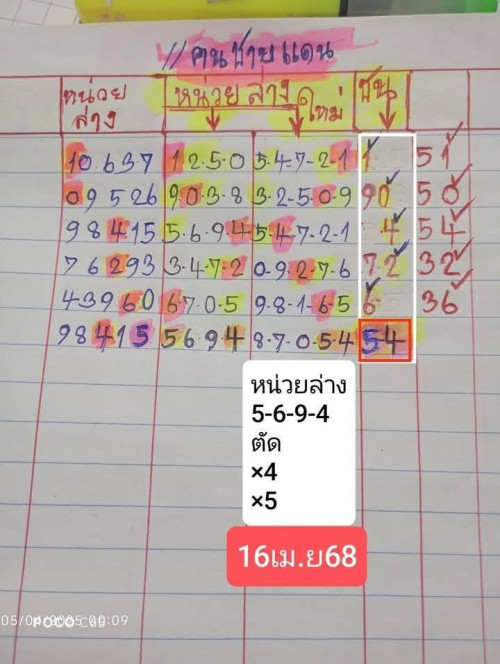 // คนชายแดน
หน่วย ล่าง หน่วย ล่าง ใหม่ ชน
10637 1-2-5-0 5-4-7-2-1 1 51
09526 90-3-8 3-2-5-0-9 90 50
98415 5-6-9-4 5-4-7-2-1 4 54
76293 3-4-7-2 0-9-2-7-6 7-2 32
43960 67-0-5 9-8-1-65 6 36
98415 569-4 8-7-0-5-4 54
หน่วยล่าง
5-6-9-4
ตัด
×4
×5
16เม.ย68
POCO C65